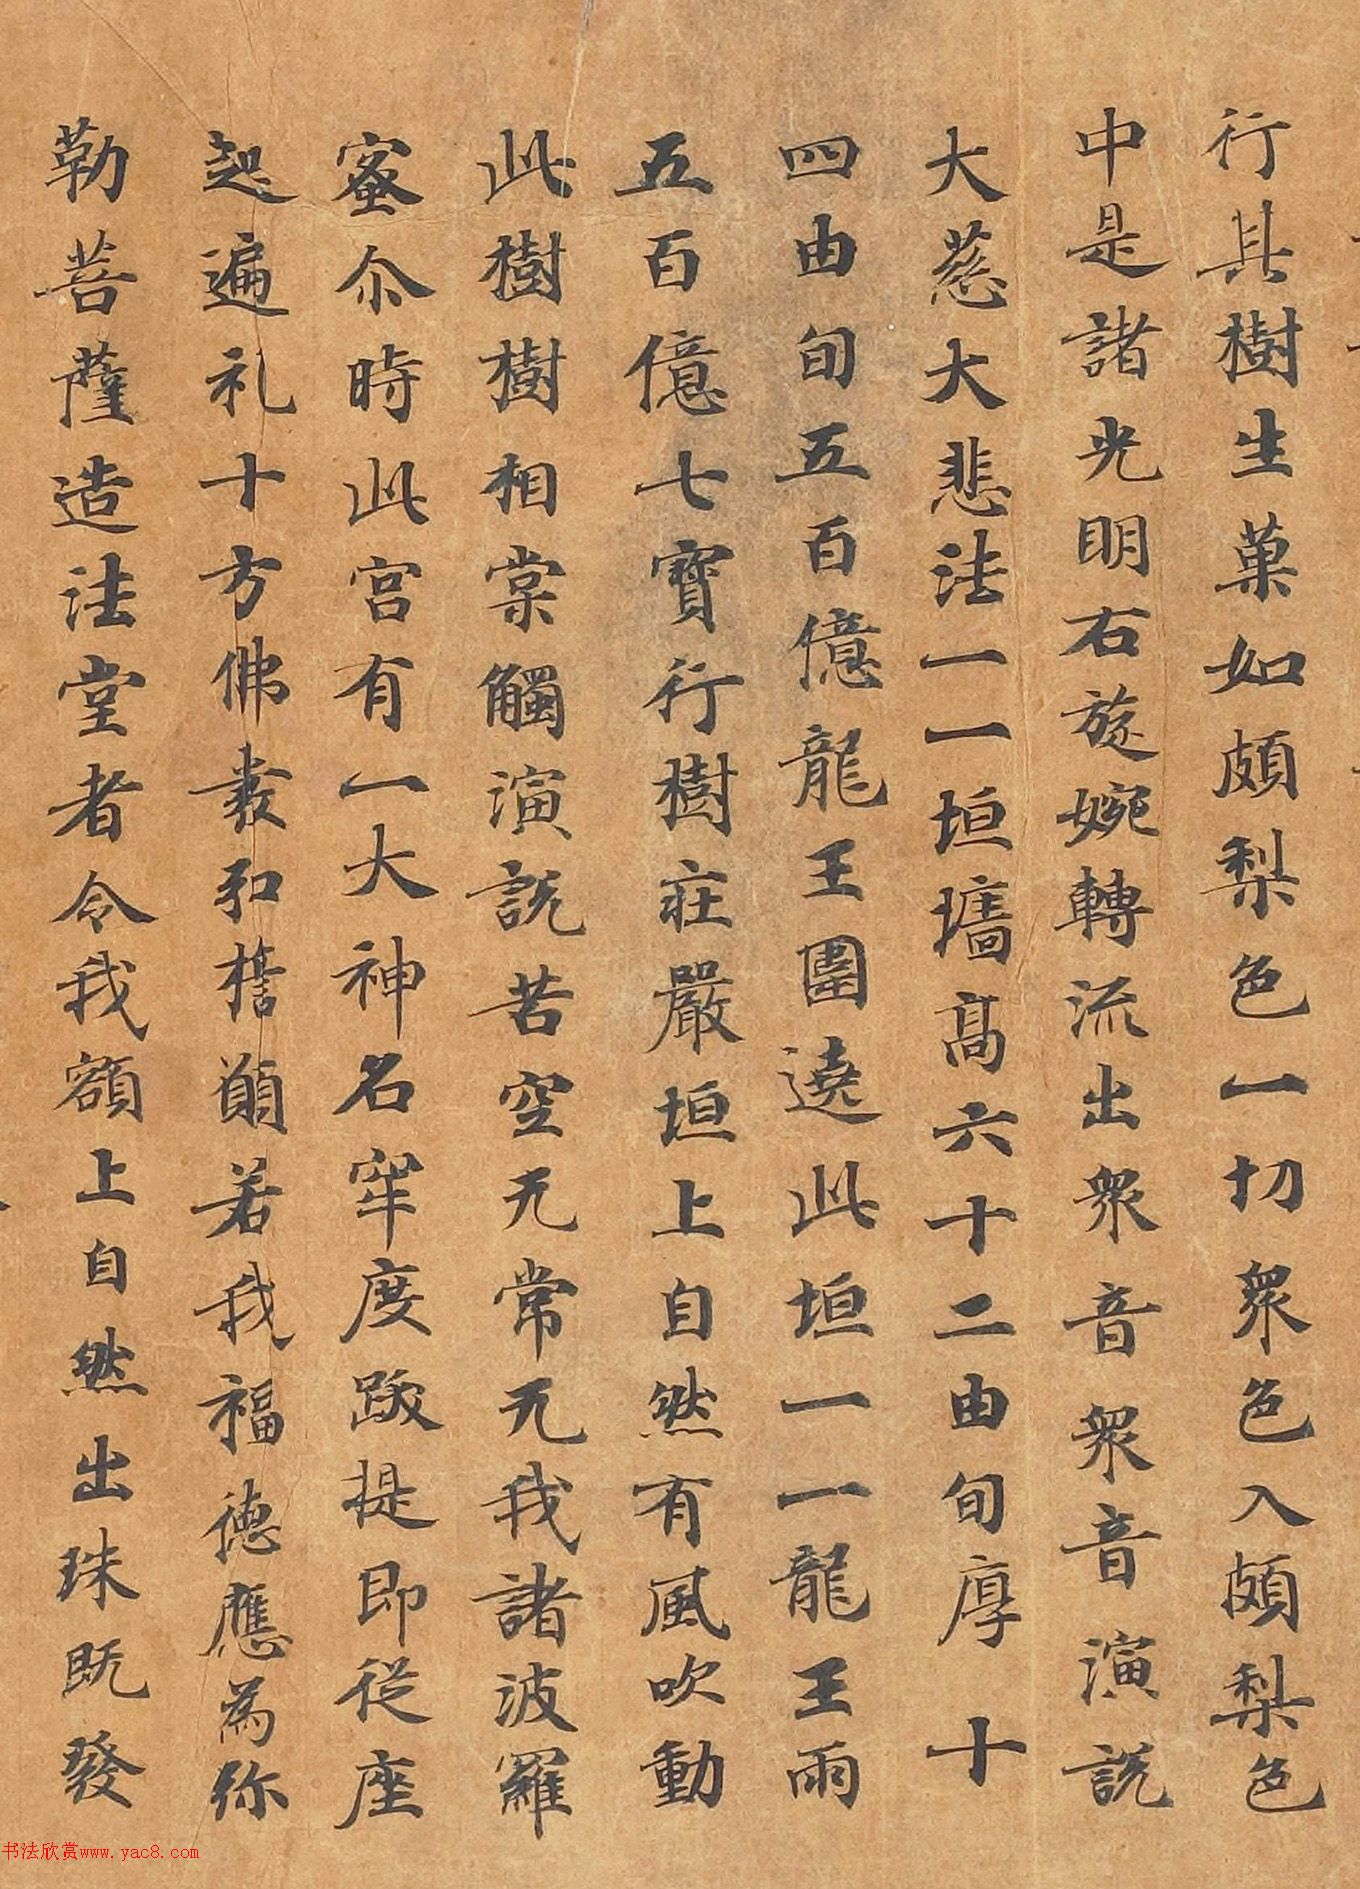 行其樹生菓如頗梨色一切衆色入頗梨色
中是諸光明右旋婉轉流出衆音衆音演說
大慈大悲法一一垣墻髙六十二由旬厚十
四由旬五百億龍王圍遶此垣一一龍王雨
五百億七寳行樹莊嚴垣上自然有風吹動
此樹樹相棠觸演説苦空无常无我諸波羅
蜜尒時此宫有一大神名窂度跋提即從座
起遍礼十方佛裝弘擔願若我福德應為弥
勒菩薩造法堂者令我額上自然出珠既發
书法欣赏www.yac8.com